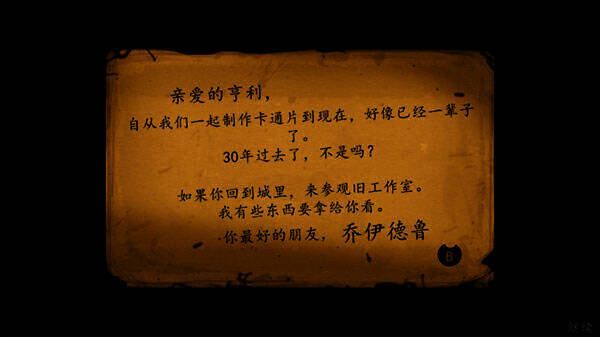 亲爱的亨利，
自从我们一起制作卡通片到现在，好像已经一辈子
了。
30年过去了，不是吗？
如果你回到城里，来参观旧工作室。
我有些东西要拿给你看。
你最好的朋友，乔伊德鲁
B